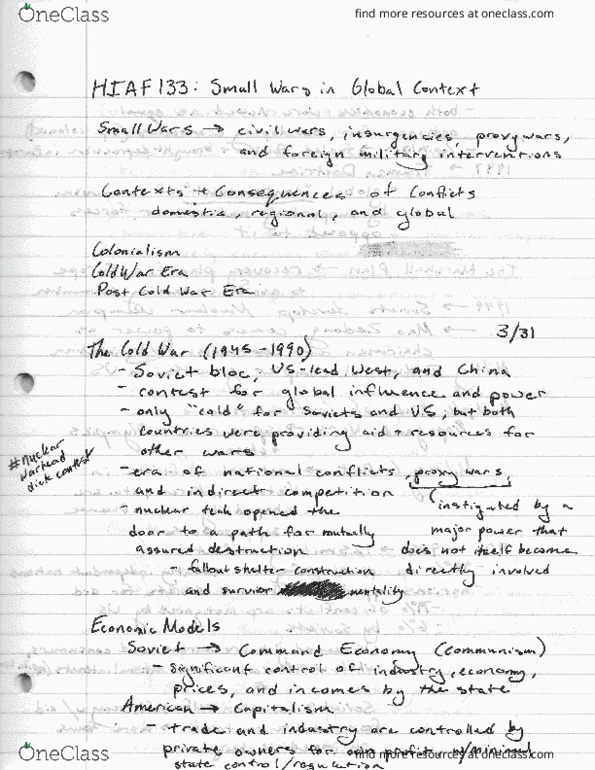 OneClass
find more resources at oneclass.com
HIAF 133: Small Wars in Global Context
Small Wars → civil wars, insurgencies, proxy wars,
and foreign military interventions
Contexts + Consequences of Conflicts
domestic, regional, and global
Colonialism
Cold War Era
Post Cold War Era
3/31
The Cold War (1945-1990)
- Soviet bloc, US-lead West, and China
- contest for global influence and power
- only "cold" for Soviets and U.S., but both
countries were providing aid + resources for
other wars
#nuclear
warhead
dick contest
- era of national conflicts, proxy wars,
and indirect competition
(instigated by a
major power that
does not itself become
directly involved
- nuclear tech opened the
door to a path for mutually
assured destruction
- fallout shelter construction
and survivor mentality
Economic Models
Soviet → Command Economy (communism)
- significant control of industry, economy,
prices, and incomes by the state
American → Capitalism
- trade and industry are controlled by
private owners for own profit w/minimal
state control/regulation
OneClass
find more resources at oneclass.com